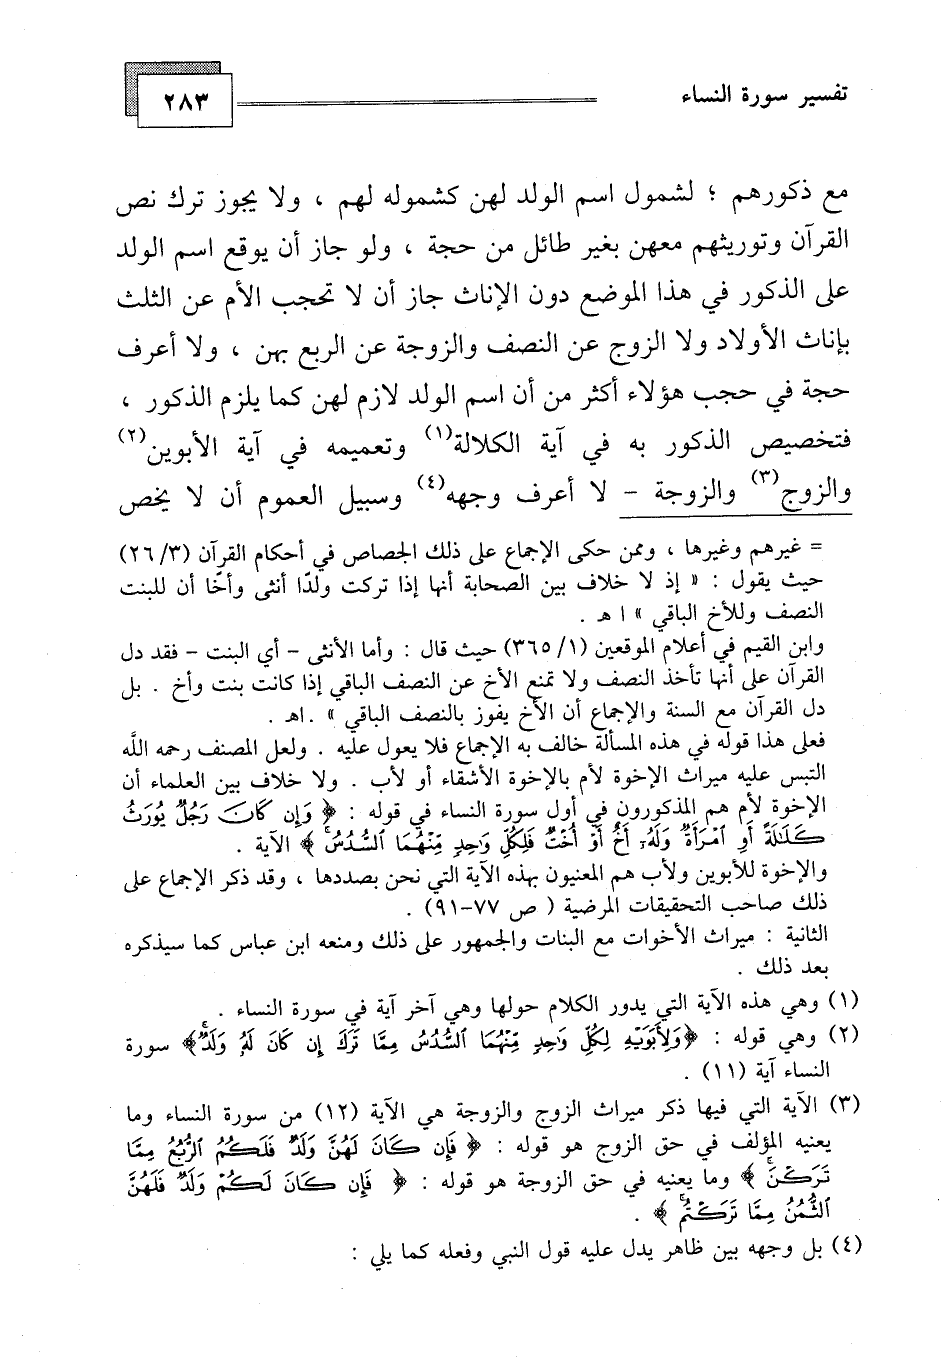 تفسير سورة النساء
٢٨٣
مع ذكورهم ؛ لشمول اسم الولد لهن كشموله لهم ، ولا يجوز ترك نص
القرآن وتوريثهم معهن بغير طائل من حجة ، ولو جاز أن يوقع اسم الولد
على الذكور في هذا الموضع دون الإناث جاز أن لا تحجب الأم عن الثلث
بإناث الأولاد ولا الزوج عن النصف والزوجة عن الربع بهن ، ولا أعرف
حجة في حجب هؤلاء أكثر من أن اسم الولد لازم لهن كما يلزم الذكور ،
فتخصيص الذكور به في آية الكلالة(١) وتعميمه في آية الأبوين(٢)
والزوج(٣) والزوجة – لا أعرف وجهه(٤) وسبيل العموم أن لا يخص
= غيرهم وغيرها ، وممن حكى الإجماع على ذلك الجصاص في أحكام القرآن (٢٦/٣)
حيث يقول : « إذ لا خلاف بين الصحابة أنها إذا تركت ولدًا أنثى وأخًا أن للبنت
النصف وللأخ الباقي » ا هـ .
وابن القيم في أعلام الموقعين (٣٦٥/١) حيث قال : وأما الأنثى – أي البنت – فقد دل
القرآن على أنها تأخذ النصف ولا تمنع الأخ عن النصف الباقي إذا كانت بنت وأخ . بل
دل القرآن مع السنة والإجماع أن الأخ يفوز بالنصف الباقي » .اهـ .
فعلى هذا قوله في هذه المسألة خالف به الإجماع فلا يعول عليه . ولعل المصنف رحمه الله
التبس عليه ميراث الإخوة لأم بالإخوة الأشقاء أو لأب . ولا خلاف بين العلماء أن
الإخوة لأم هم المذكورون في أول سورة النساء في قوله : ﴿ وَإِن كَانَ رَجُلٌ يُورَثُ
كَلَـٰلَةً أَوِ ٱمْرَأَةٌ وَلَهُۥ أَخٌ أَوْ أُخْتٌ فَلِكُلِّ وَٰحِدٍ مِّنْهُمَا ٱلسُّدُسُ ﴾ الآية .
والإخوة للأبوين ولأب هم المعنيون بهذه الآية التي نحن بصددها ، وقد ذكر الإجماع على
ذلك صاحب التحقيقات المرضية ( ص ٧٧-٩١) .
الثانية : ميراث الأخوات مع البنات والجمهور على ذلك ومنعه ابن عباس كما سيذكره
بعد ذلك .
(١) وهي هذه الآية التي يدور الكلام حولها وهي آخر آية في سورة النساء .
(٢) وهي قوله : ﴿وَلِأَبَوَيْهِ لِكُلِّ وَٰحِدٍ مِّنْهُمَا ٱلسُّدُسُ مِمَّا تَرَكَ إِن كَانَ لَهُۥ وَلَدٌ﴾ سورة
النساء آية (١١) .
(٣) الآية التي فيها ذكر ميراث الزوج والزوجة هي الآية (١٢) من سورة النساء وما
يعنيه المؤلف في حق الزوج هو قوله : ﴿ فَإِن كَانَ لَهُنَّ وَلَدٌ فَلَكُمُ ٱلرُّبُعُ مِمَّا
تَرَكْنَ ﴾ وما يعنيه في حق الزوجة هو قوله : ﴿ فَإِن كَانَ لَكُمْ وَلَدٌ فَلَهُنَّ
ٱلثُّمُنُ مِمَّا تَرَكْتُم ﴾ .
(٤) بل وجهه بين ظاهر يدل عليه قول النبي وفعله كما يلي :